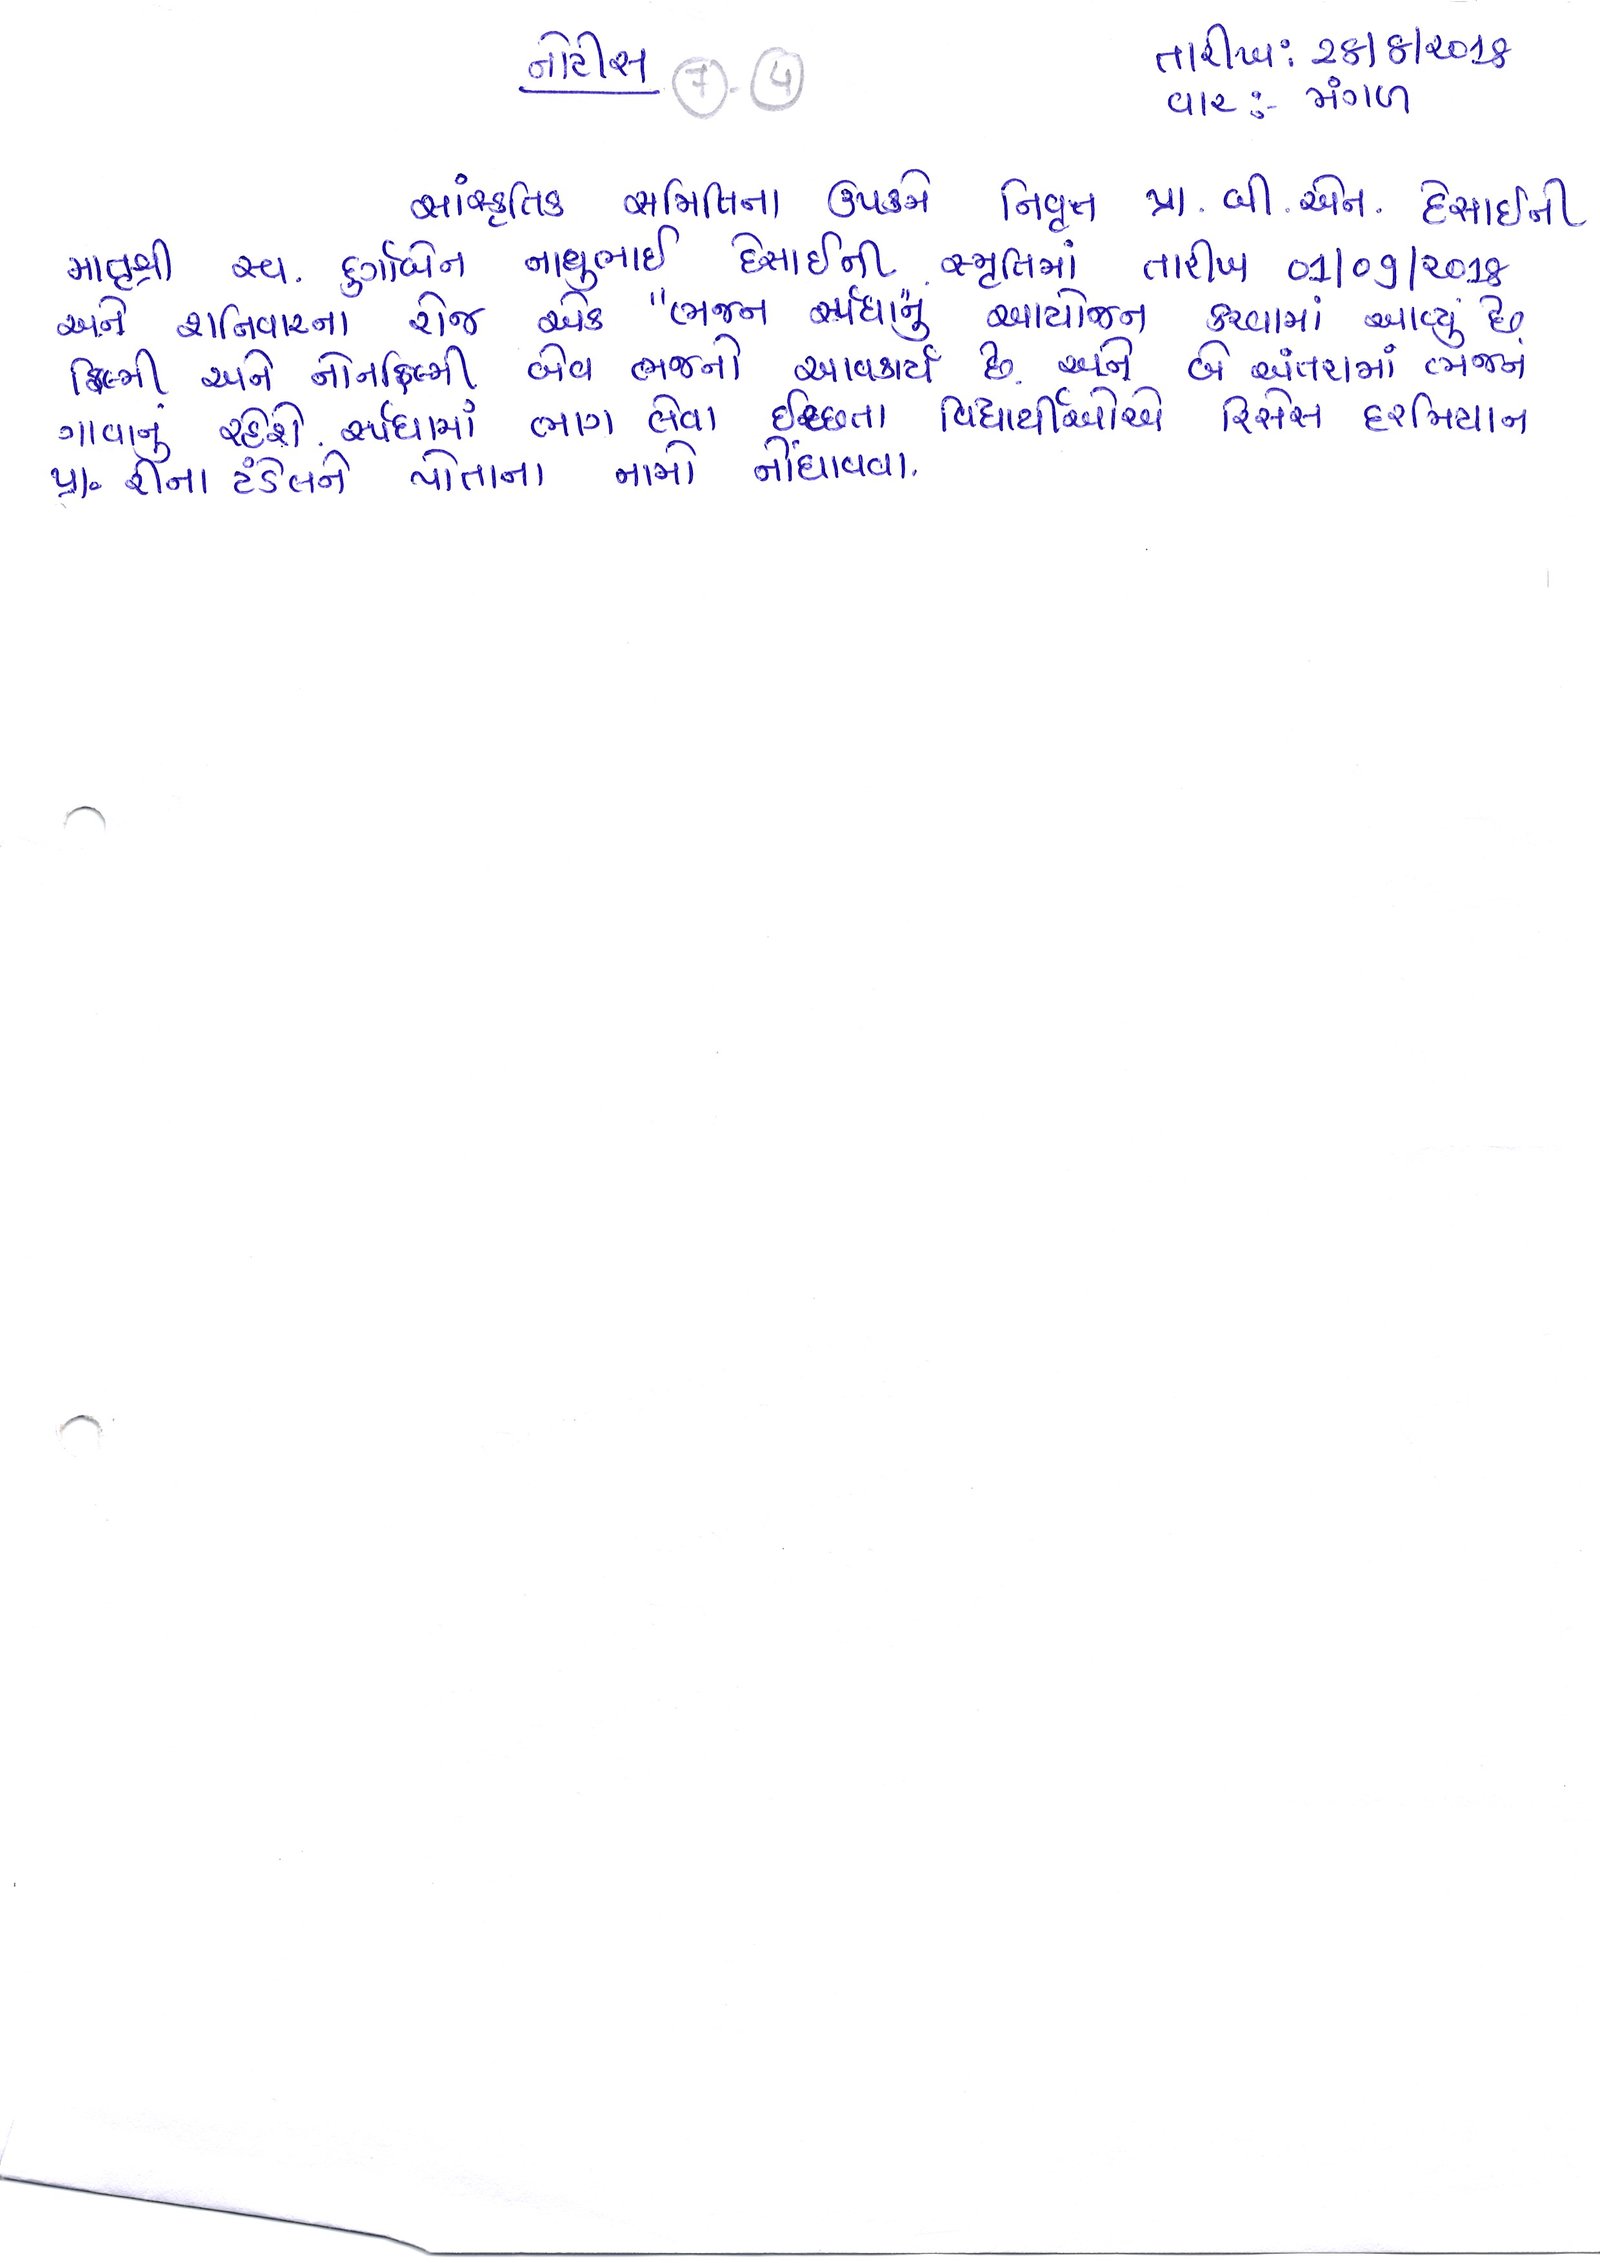 નોટીસ 7-4
તારીખ: ૨૮/૮/૨૦૧૮
વાર :- મંગળ
સાંસ્કૃતિક સમિતિના ઉપક્રમે નિવૃત્ત પ્રા. બી. એન. દેસાઈની
માતૃશ્રી સ્વ. દુર્ગાબેન નાથુભાઈ દેસાઈની સ્મૃતિમાં તારીખ ૦૧/૦૯/૨૦૧૮
અને શનિવારના રોજ એક "ભજન સ્પર્ધા"નું આયોજન કરવામાં આવ્યું છે
ફિલ્મી અને નોનફિલ્મી બેવ ભજનો આવકાર્ય છે. અને બે અંતરામાં ભજન
ગાવાનું રહેશે. સ્પર્ધામાં ભાગ લેવા ઈચ્છતા વિદ્યાર્થીઓએ રિસેસ દરમિયાન
પ્રા. રીના ટંડેલને પોતાના નામો નોંધાવવા.